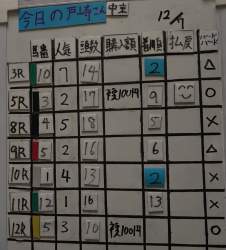 今日の戸崎さん 中京 12/1
馬番 人気 頭数 購入額 着順 払戻
3R 10 7 14 2 △
5R 3 2 17 複100円 9 ○
8R 4 5 18 5 ×
9R 5 2 16 6 △
10R 1 4 13 2 ×
11R 12 1 16 13 ×
12R 5 3 10 複100円 ○